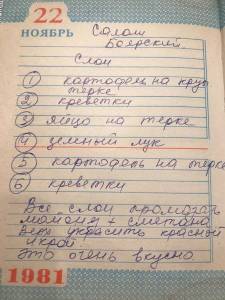 22
НОЯБРЬ
Салат
Боярский
Слои
1 картофель на круп
терке
2 креветки
3 яйцо на терке
4 цемный лук
5 картофель на терке
6 креветки
Все слои промазать
майонез + сметана
Верх украсить красной
икрой
Это очень вкусно
1981